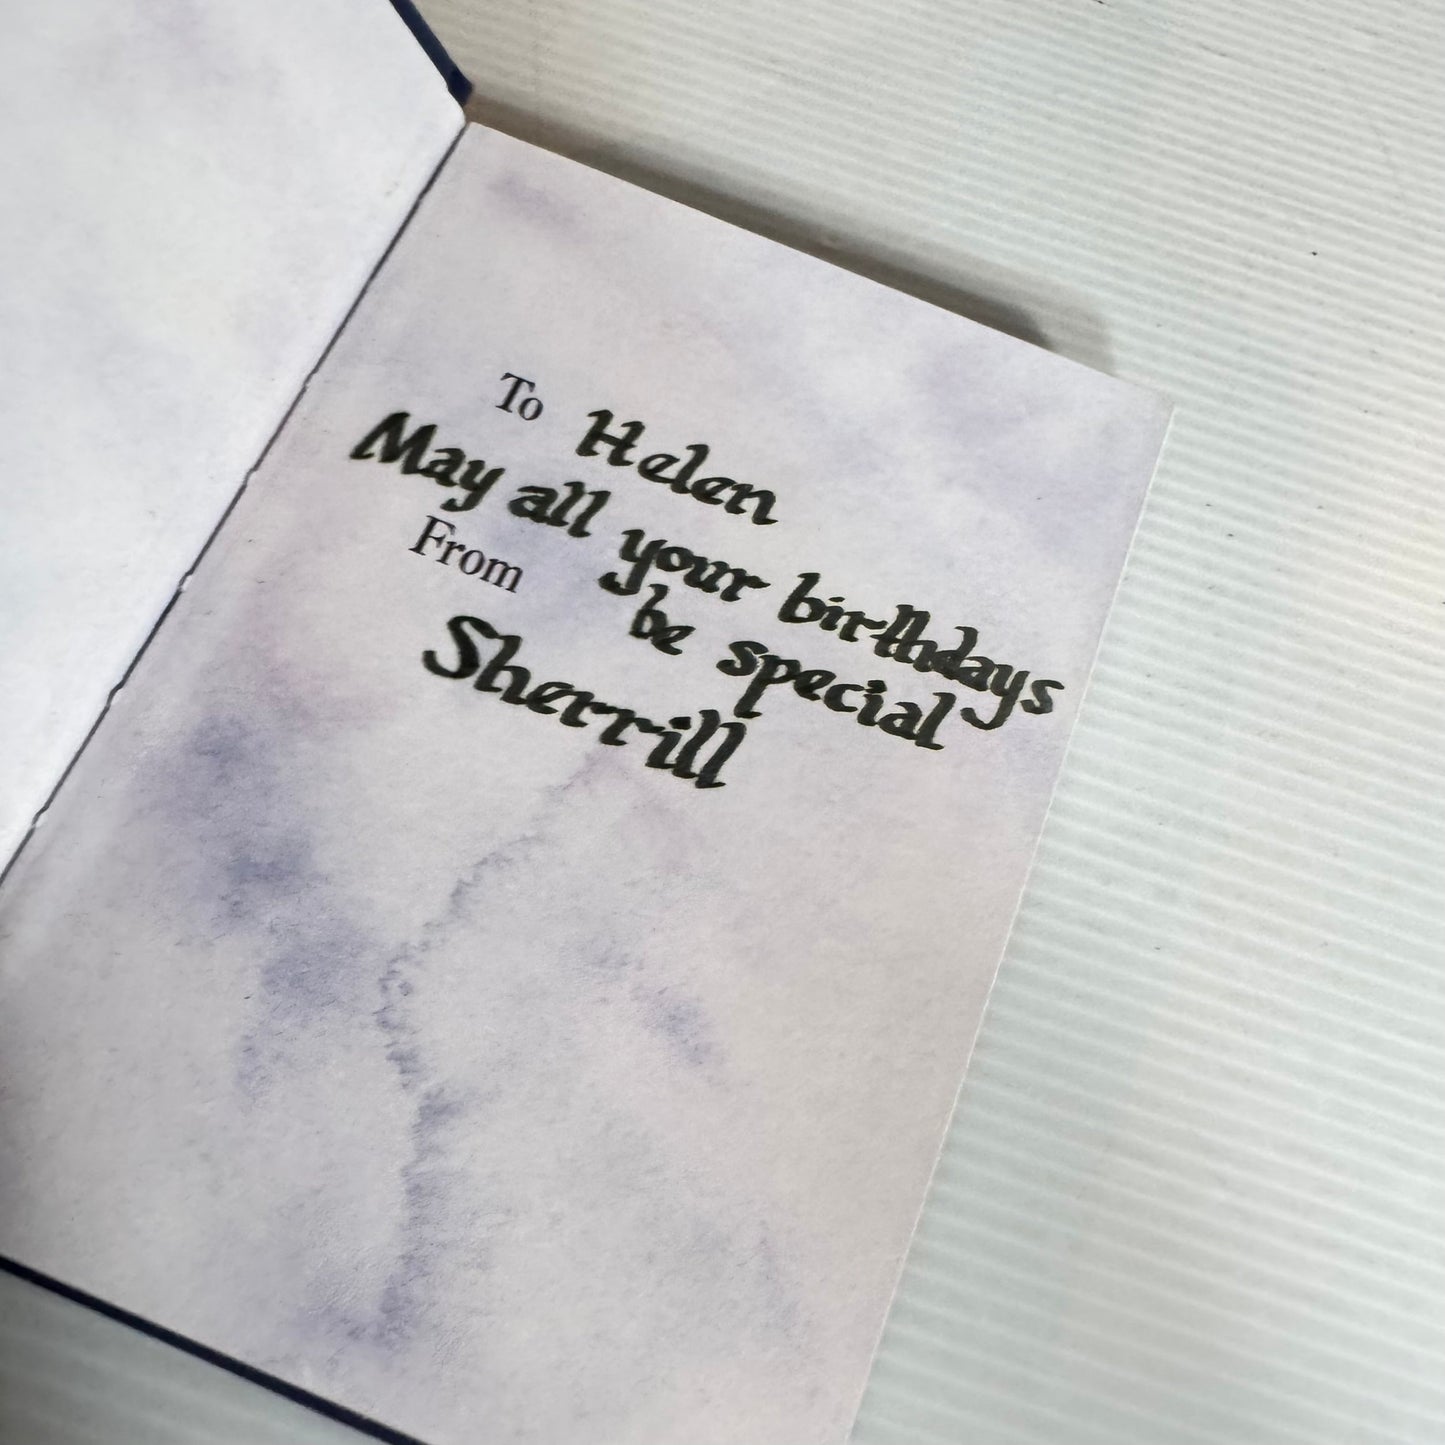 To Helen
May all your birthdays
be special
From
Sherrill